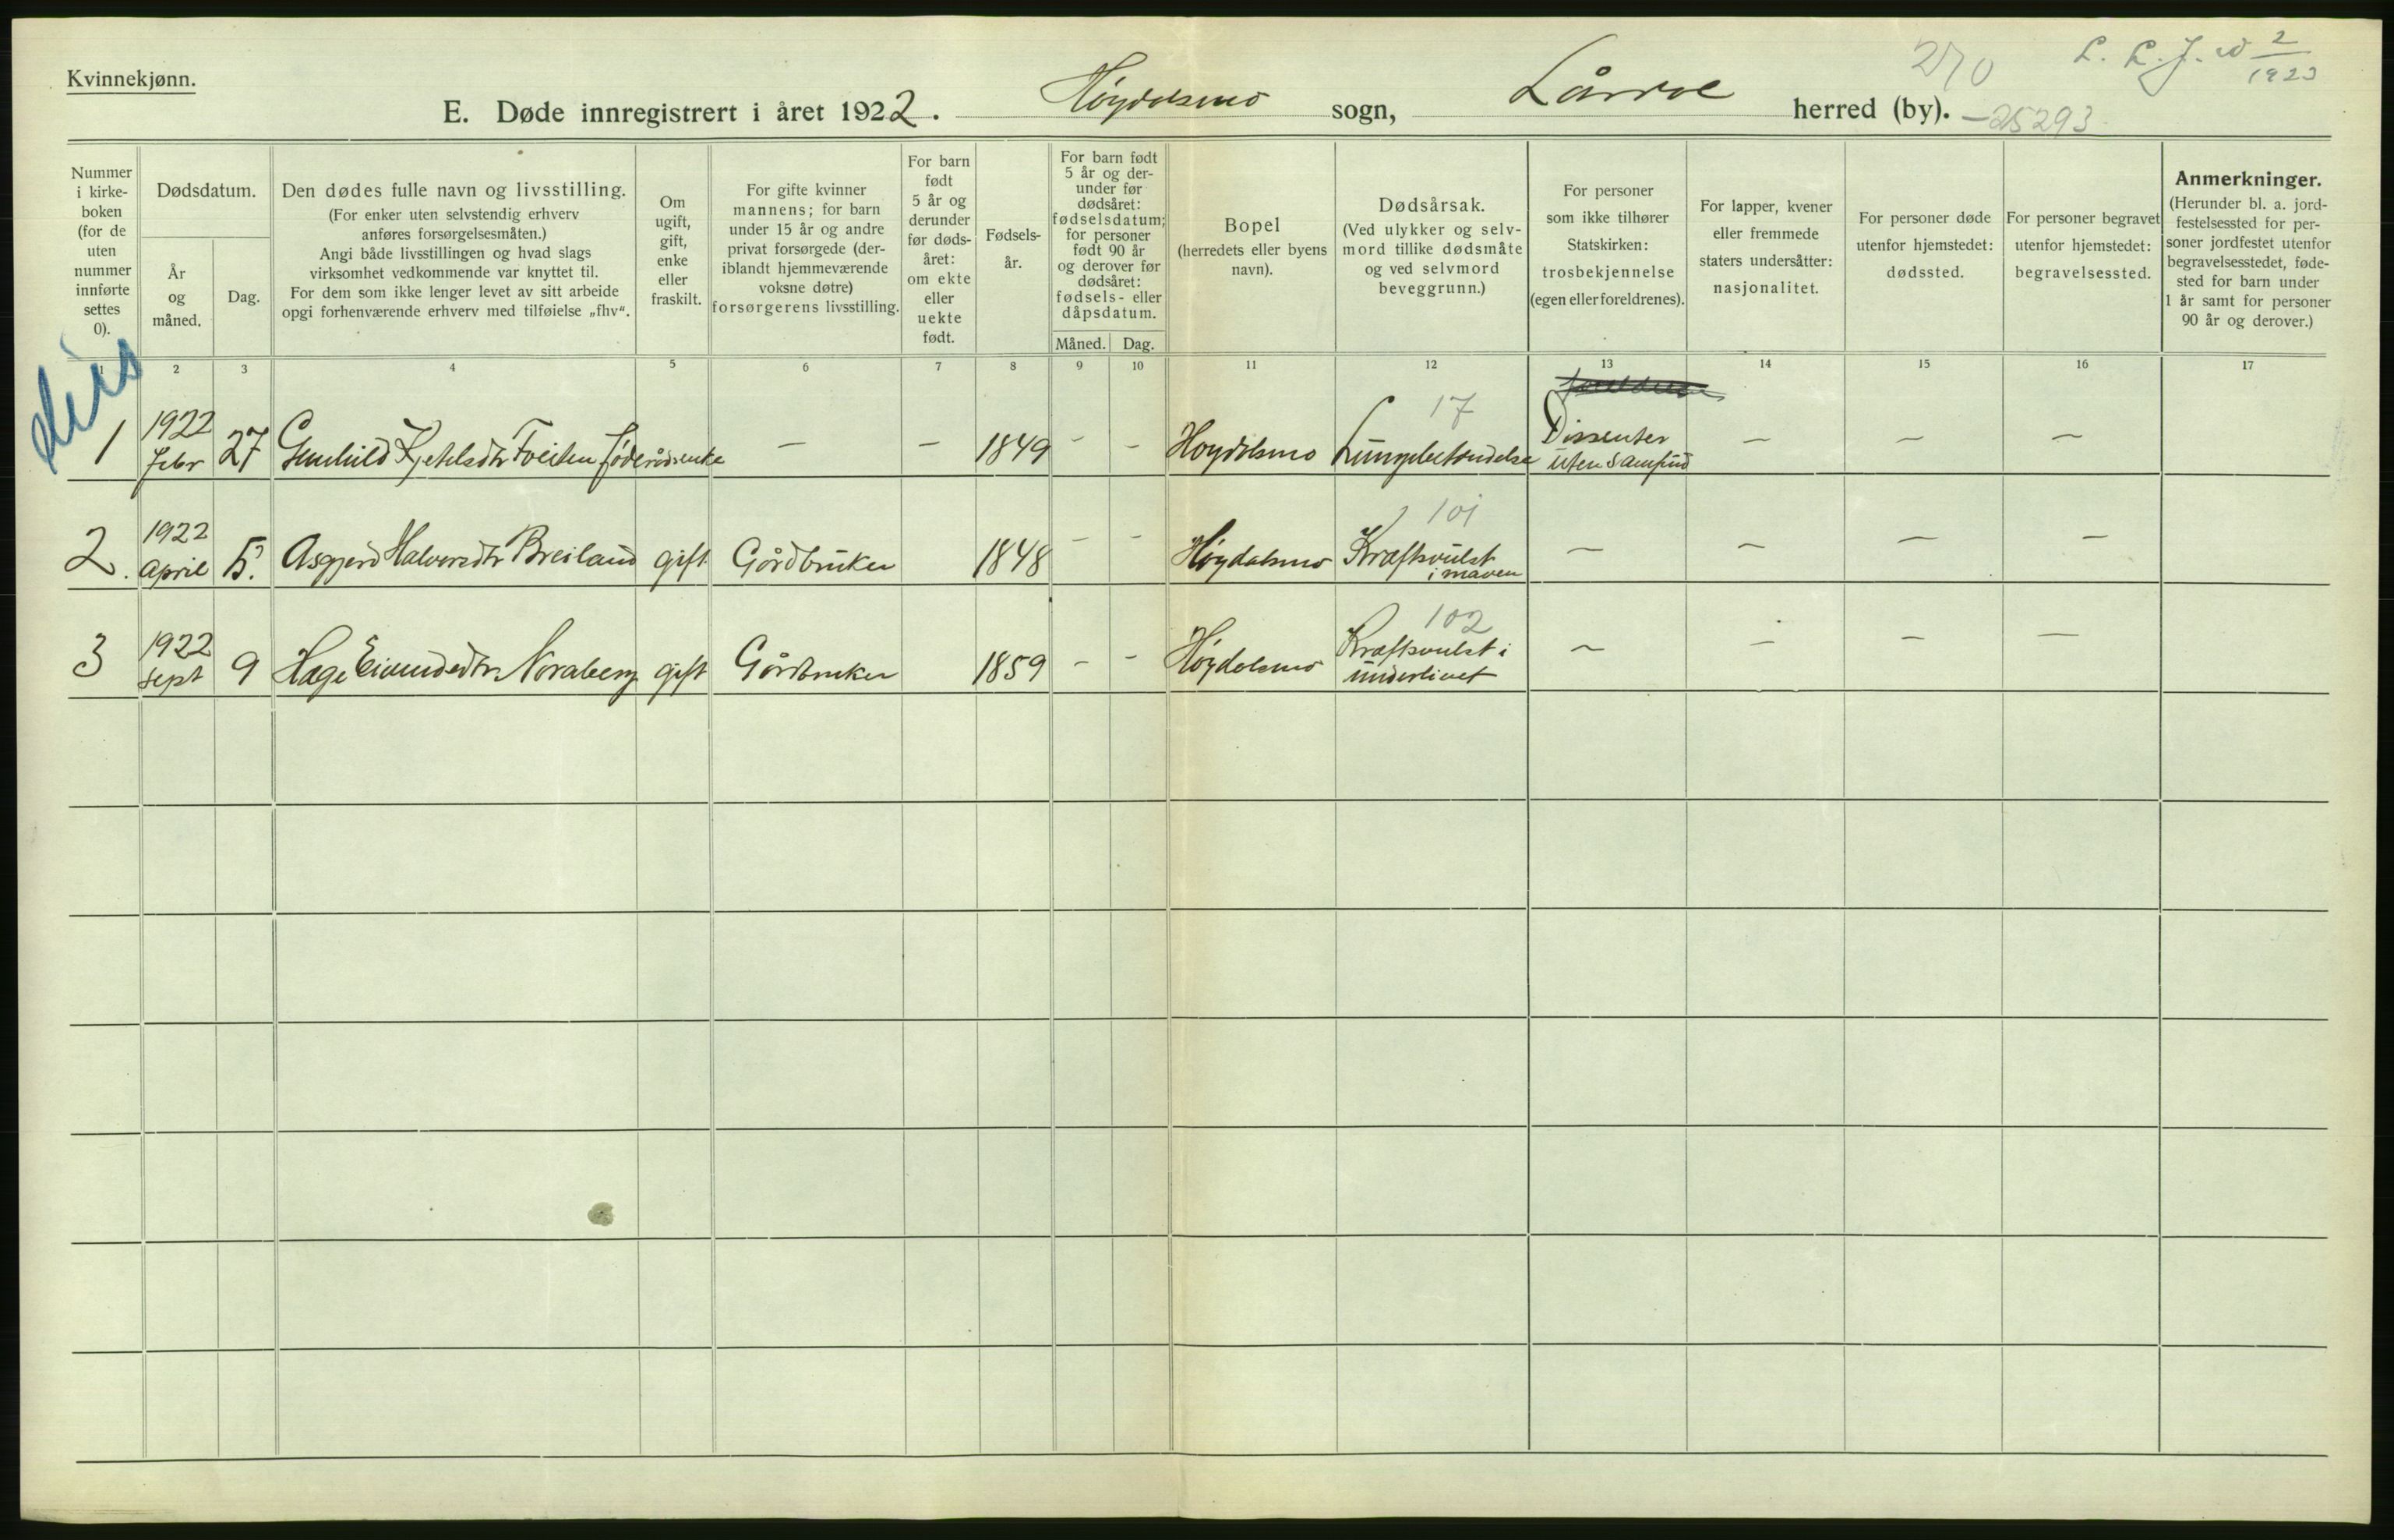 Kvinnekjønn.
270
L. L. J. w 2/1923
E. Døde innregistrert i året 1922. Høydalsmo sogn, Lårdal herred (by). —25293
Nummer i kirkeboken (for de uten nummer innførte settes 0).
Dødsdatum.
År og måned.
Dag.
Den dødes fulle navn og livsstilling.
(For enker uten selvstendig erhverv
anføres forsørgelsesmåten.)
Angi både livsstillingen og hvad slags
virksomhet vedkommende var knyttet til.
For dem som ikke lenger levet av sitt arbeide
opgi forhenværende erhverv med tilføielse „fhv“.
Om ugift, gift, enke eller fraskilt.
For gifte kvinner
mannens; for barn
under 15 år og andre
privat forsørgede (der-
iblandt hjemmeværende
voksne døtre)
forsørgerens livsstilling.
For barn
født
5 år og
derunder
før døds-
året:
om ekte
eller
uekte
født.
Fødsels-
år.
For barn født
5 år og der-
under før
dødsåret:
fødselsdatum;
for personer
født 90 år
og derover før
dødsåret:
fødsels- eller
dåpsdatum.
Måned. Dag.
Bopel
(herredets eller byens
navn).
Dødsårsak.
(Ved ulykker og selv-
mord tillike dødsmåte
og ved selvmord
beveggrunn.)
For personer
som ikke tilhører
Statskirken:
trosbekjennelse
(egen eller foreldrenes).
For lapper, kvener
eller fremmede
staters undersåtter:
nasjonalitet.
For personer døde
utenfor hjemstedet:
dødssted.
For personer begravet
utenfor hjemstedet:
begravelsessted.
Anmerkninger.
(Herunder bl. a. jord-
festelsessted for per-
soner jordfestet utenfor
begravelsesstedet, føde-
sted for barn under
1 år samt for personer
90 år og derover.)
1 2 3 4 5 6 7 8 9 10 11 12 13 14 15 16 17
diss
1 1922 Febr 27 Gunhild Kjetelsdtr Tveiten føderådsenke — — 1849 - - Høydalsmo 17 Lungebetendelse Dissenter uten samfund — — —
2. 1922 April 5. Asgjerd Halvorsdtr Breiland gift Gårdbruker 1848 - - Høydalsmo 101 Kræftsvulst i maven — — — —
3 1922 Sept 9 Hæge Eivindsdtr Noraberg gift Gårdbruker 1859 - - Høydalsmo 102 Kræftsvulst i underlivet — — — —